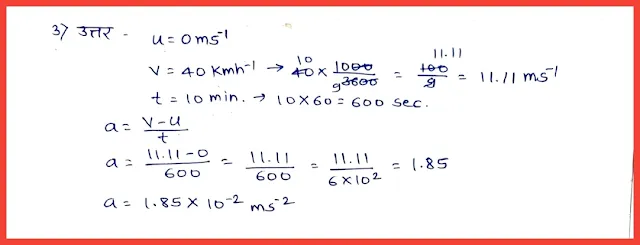 3) उत्तर - u = 0 ms⁻¹
v = 40 Kmh⁻¹ → 40 10 × 1000/3600 9 = 100/9 11.11 = 11.11 ms⁻¹
t = 10 min. → 10×60 = 600 sec.
a = v-u/t
a = 11.11-0/600 = 11.11/600 = 11.11/6×10² = 1.85
a = 1.85 × 10⁻² ms⁻²